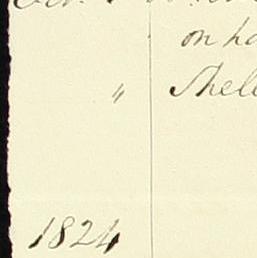 on ha
" Shell
1824